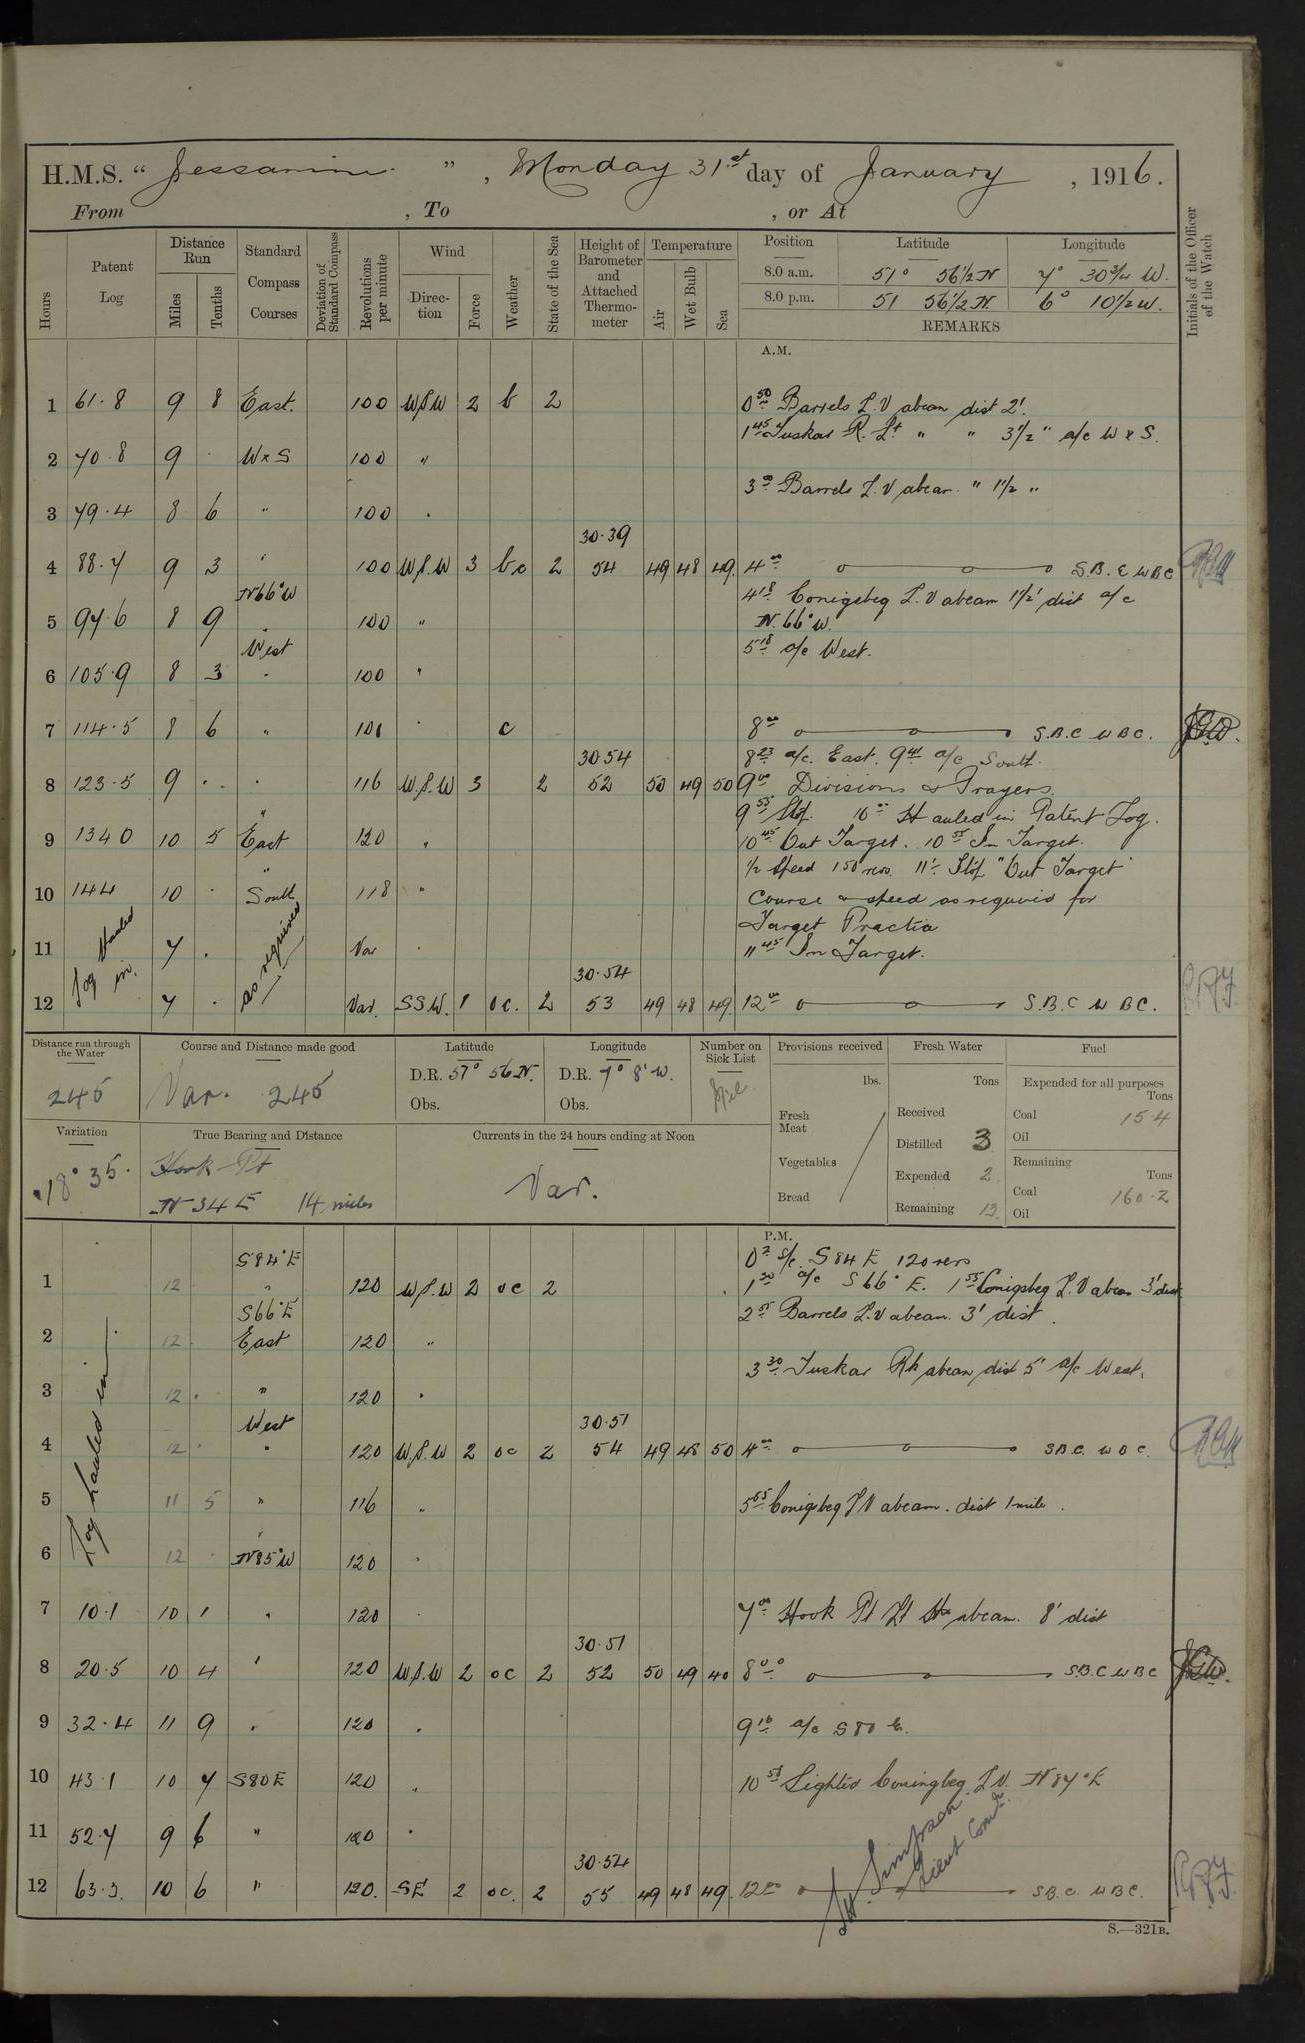 H.M.S. "Jessamine", Monday 31st day of January, 1916.
From , To , or At
Hours Patent Log Distance Run Miles Tenths Standard Compass Courses Deviation of Standard Compass Revolutions per minute Wind Direction Force Weather State of the Sea Height of Barometer and Attached Thermometer Temperature Air Wet Bulb Sea Position Latitude Longitude Initials of the Officer of the Watch
8.0 a.m. 51° 56½ N 7° 30¾ W.
8.0 p.m. 51 56½ N. 6° 10½ W.
REMARKS
A.M.
1 61.8 9 8 East. 100 W.S.W 2 b 2 0 50 Barrels L.V abeam dist 2'.
1 45 Tuskar R. Lt " " 3½ " a/c W x S.
2 70.8 9 . W x S 100 "
3 00 Barrels L.V abeam " 1½ "
3 79.4 8 6 " 100 .
30.39
4 88.7 9 3 ' 100 W.S.W 3 bc 2 54 49 48 49. 4 00 S.B.C W B C
N66°W 4 18 Conigsbeg L.V abeam 1½' dist a/c
5 97.6 8 9 . 100 " N. 66° W.
West 5 18 a/c West.
6 105.9 8 3 . 100 "
7 114.5 8 6 " 101 ' c 8 00 S.B.C W B C.
30.54 8 23 a/c. East. 9 41 a/c South.
8 123.5 9 . . 116 W.S.W 3 2 52 50 49 50 9 00 Divisions & Prayers.
" 9 55 Stop. 10 00 Hauled in Patent Log.
9 134.0 10 5 East 120 " 10 45 Out Target. 10 55 In Target.
" ½ speed 150 revs. 11 Stop "Out Target"
10 144 10 . South 118 " Course & speed as requird for
Target Practice
11 Log Hauled in. 7 . as required Var . 11 45 In Target.
30.54
12 7 . Var. SSW. 1 oc. 2 53 49 48 49. 12 00 S.B.C W B C.
Distance run through the Water Course and Distance made good Latitude Longitude Number on Sick List Provisions received Fresh Water Fuel
245 Var. 245 D.R. 51° 56 N. D.R. 7° 8' W. lbs. Tons Expended for all purposes Tons
Obs. Obs. Fresh Meat Received Coal 15.4
Variation True Bearing and Distance Currents in the 24 hours ending at Noon Distilled 3 Oil
18° 35. Hook Pt Var. Vegetables Expended 2 Remaining Tons
N 34 E 14 miles Bread Remaining 13 Coal 160.2
Oil
P.M.
S84°E 0 2 s/c. S84 E 120 revs
1 12 " 120 W.S.W 2 oc 2 1 20 a/c S66° E. 1 55 Conigsbeg L.V abeam 3' dist
S66°E 2 55 Barrels L.V abeam 3' dist.
2 12 . East 120 "
3 30 Tuskar Rk abeam dist 5' a/c West.
3 12 . " 120 "
West 30.51
4 12 . " 120 W.S.W 2 oc 2 54 49 48 50 4 00 S.B.C. W B C.
5 Log hauled in 11 5 " 116 " 5 55 Conigsbeg L V abeam. dist 1 mile.
6 12 . N85°W 120 '
7 10.1 10 1 " 120 7 00 Hook Pt Lt Ho abeam. 8' dist
30.51
8 20.5 10 4 ' 120 W.S.W 2 oc 2 52 50 49 40 8 00 S.B.C W B C
9 32.4 11 9 " 120 " 9 10 a/c S80 E.
10 43.1 10 7 S80E 120 " 10 58 Sighted Coningbeg L.V. N 87° E
11 52.7 9 6 " 120 "
30.54
12 63.3 10 6 " 120. SE 2 oc. 2 55 49 48 49. 12 00 S.B.C. W B C.
Simpson
Lieut Comdr.
S.—321B.